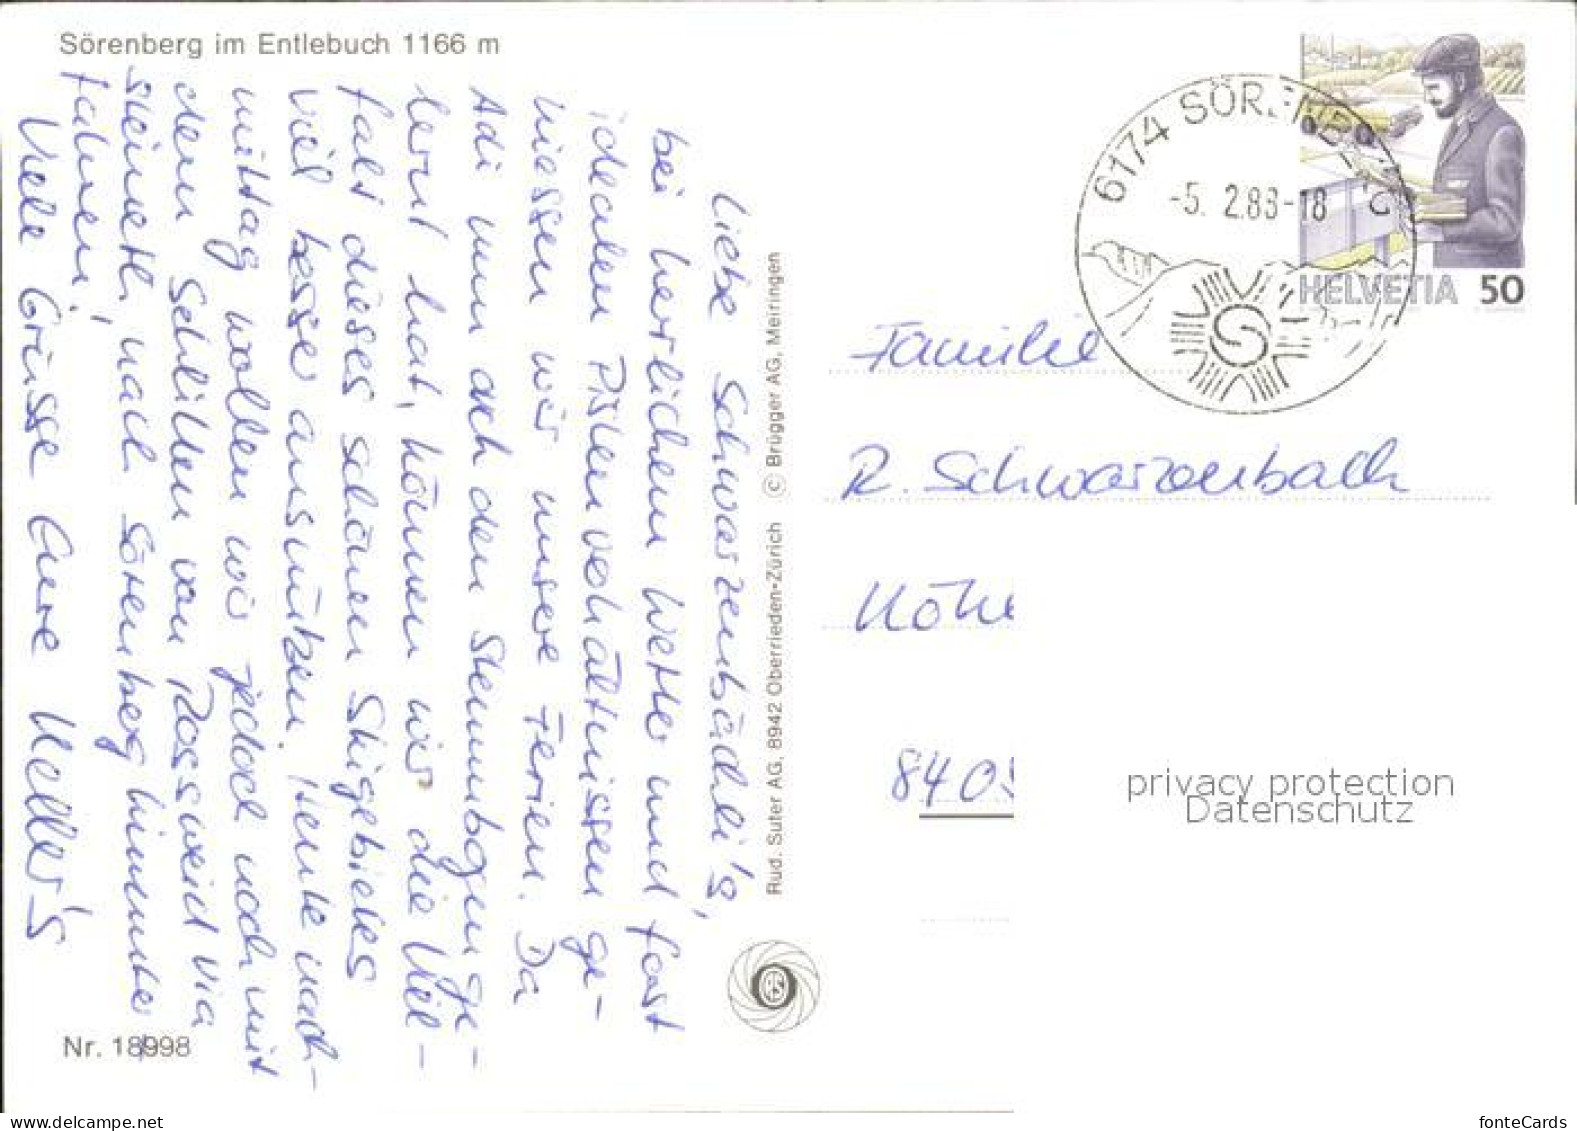 Sörenberg im Entlebuch 1166 m
Liebe Schwarzenbächli's,
bei herrlichem Wetter und fast
idealen Pistenverhältnissen ge-
niessen wir unsere Ferien. Da
Adi nun auch den Stemmbogen ge-
lernt hat, können wir die Viel-
falt dieses schönen Skigebietes
viel besser ausnützen. Heute nach-
mittag wollen wir jedoch noch mit
dem Schlitten von Rossweid via
nach Sörenberg hinunter
fahren!
Viele Grüsse Eure Keller's
Nr. 18998
Rud. Suter AG, 8942 Oberrieden-Zürich © Brügger AG, Meiringen
6174 SÖRENBERG
-5. 2.88-18
HELVETIA 50
Familie
R. Schwarzenbach
840
privacy protection
Datenschutz
www.delcampe.net
fonteCards